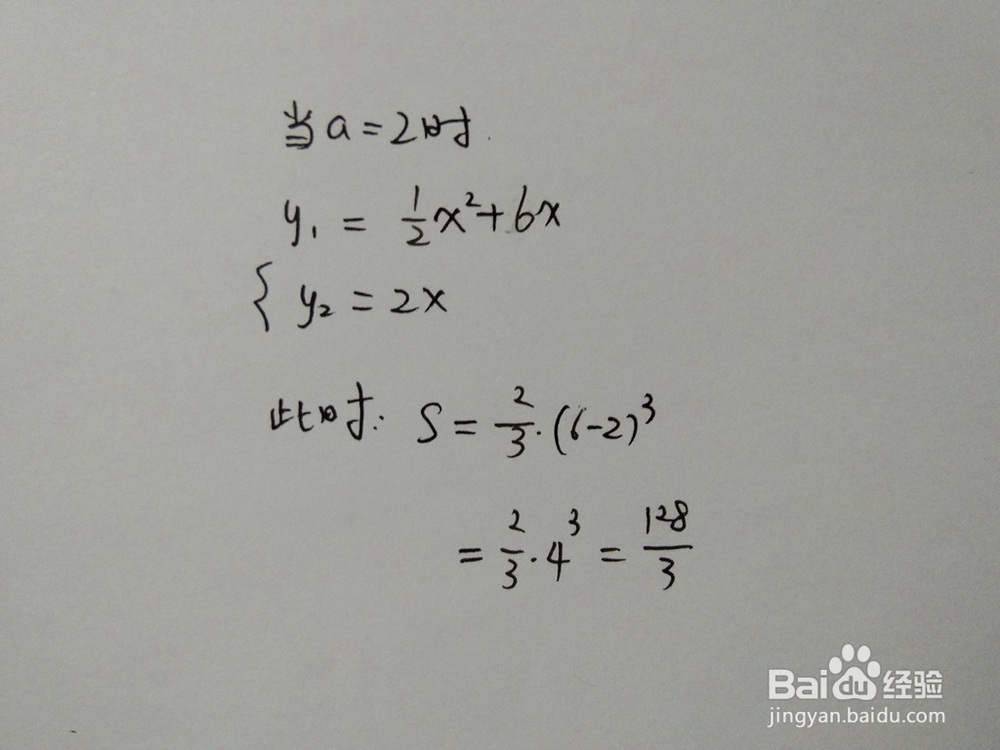 当a=2时.
y₁ = 1/2 x²+6x
{ y₂ = 2x
此时: S = 2/3·(6-2)³
= 2/3·4³ = 128/3
Baidu经验
jingyan.baidu.com